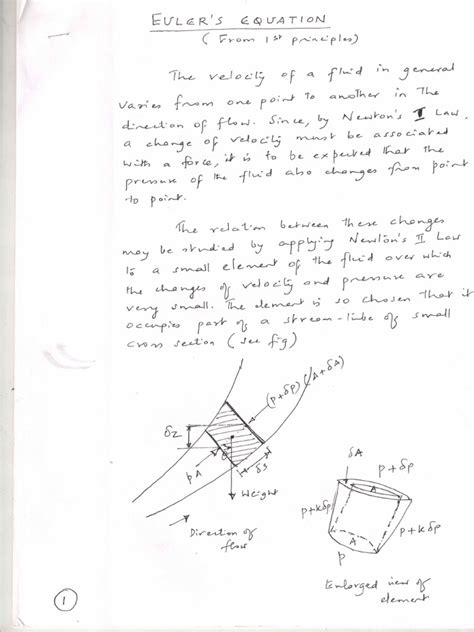 EULER'S EQUATION
(From 1st principles)
The velocity of a fluid in general
varies from one point to another in the
direction of flow. Since, by Newton's II Law,
a change of velocity must be associated
with a force, it is to be expected that the
pressure of the fluid also changes from point
to point.
The relation between these changes
may be studied by applying Newton's II Law
to a small element of the fluid over which
the changes of velocity and pressure are
very small. The element is so chosen that it
occupies part of a stream-tube of small
cross section (see fig)
(p+δp)(A+δA)
δz
pA
δs
Weight
Direction of
flow
δA
p+δp
A
p+kδp
p+kδp
A
p
Enlarged view of
element
1